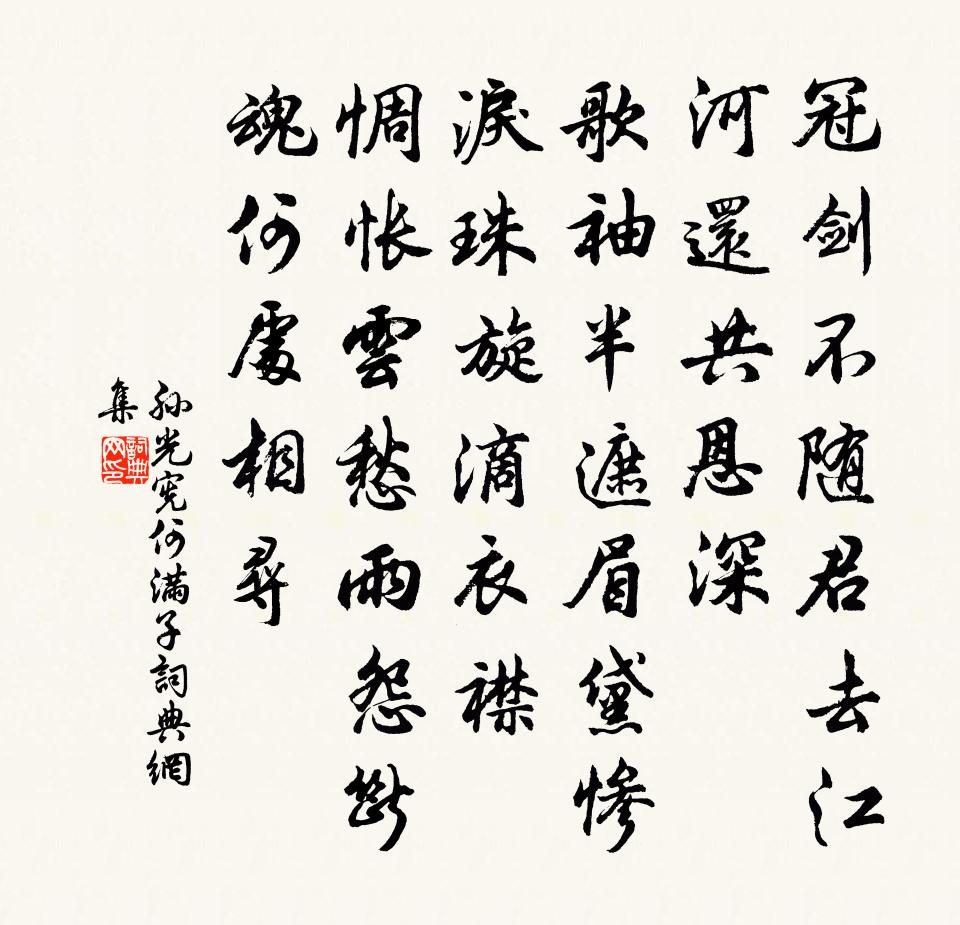 冠剑不随君去江
河還共恩深
歌袖半遮眉黛慘
淚珠旋滴衣襟
惆怅雲愁雨怨斷
魂何處相尋
孙光宪何滿子詞典網
集
詞典
网印